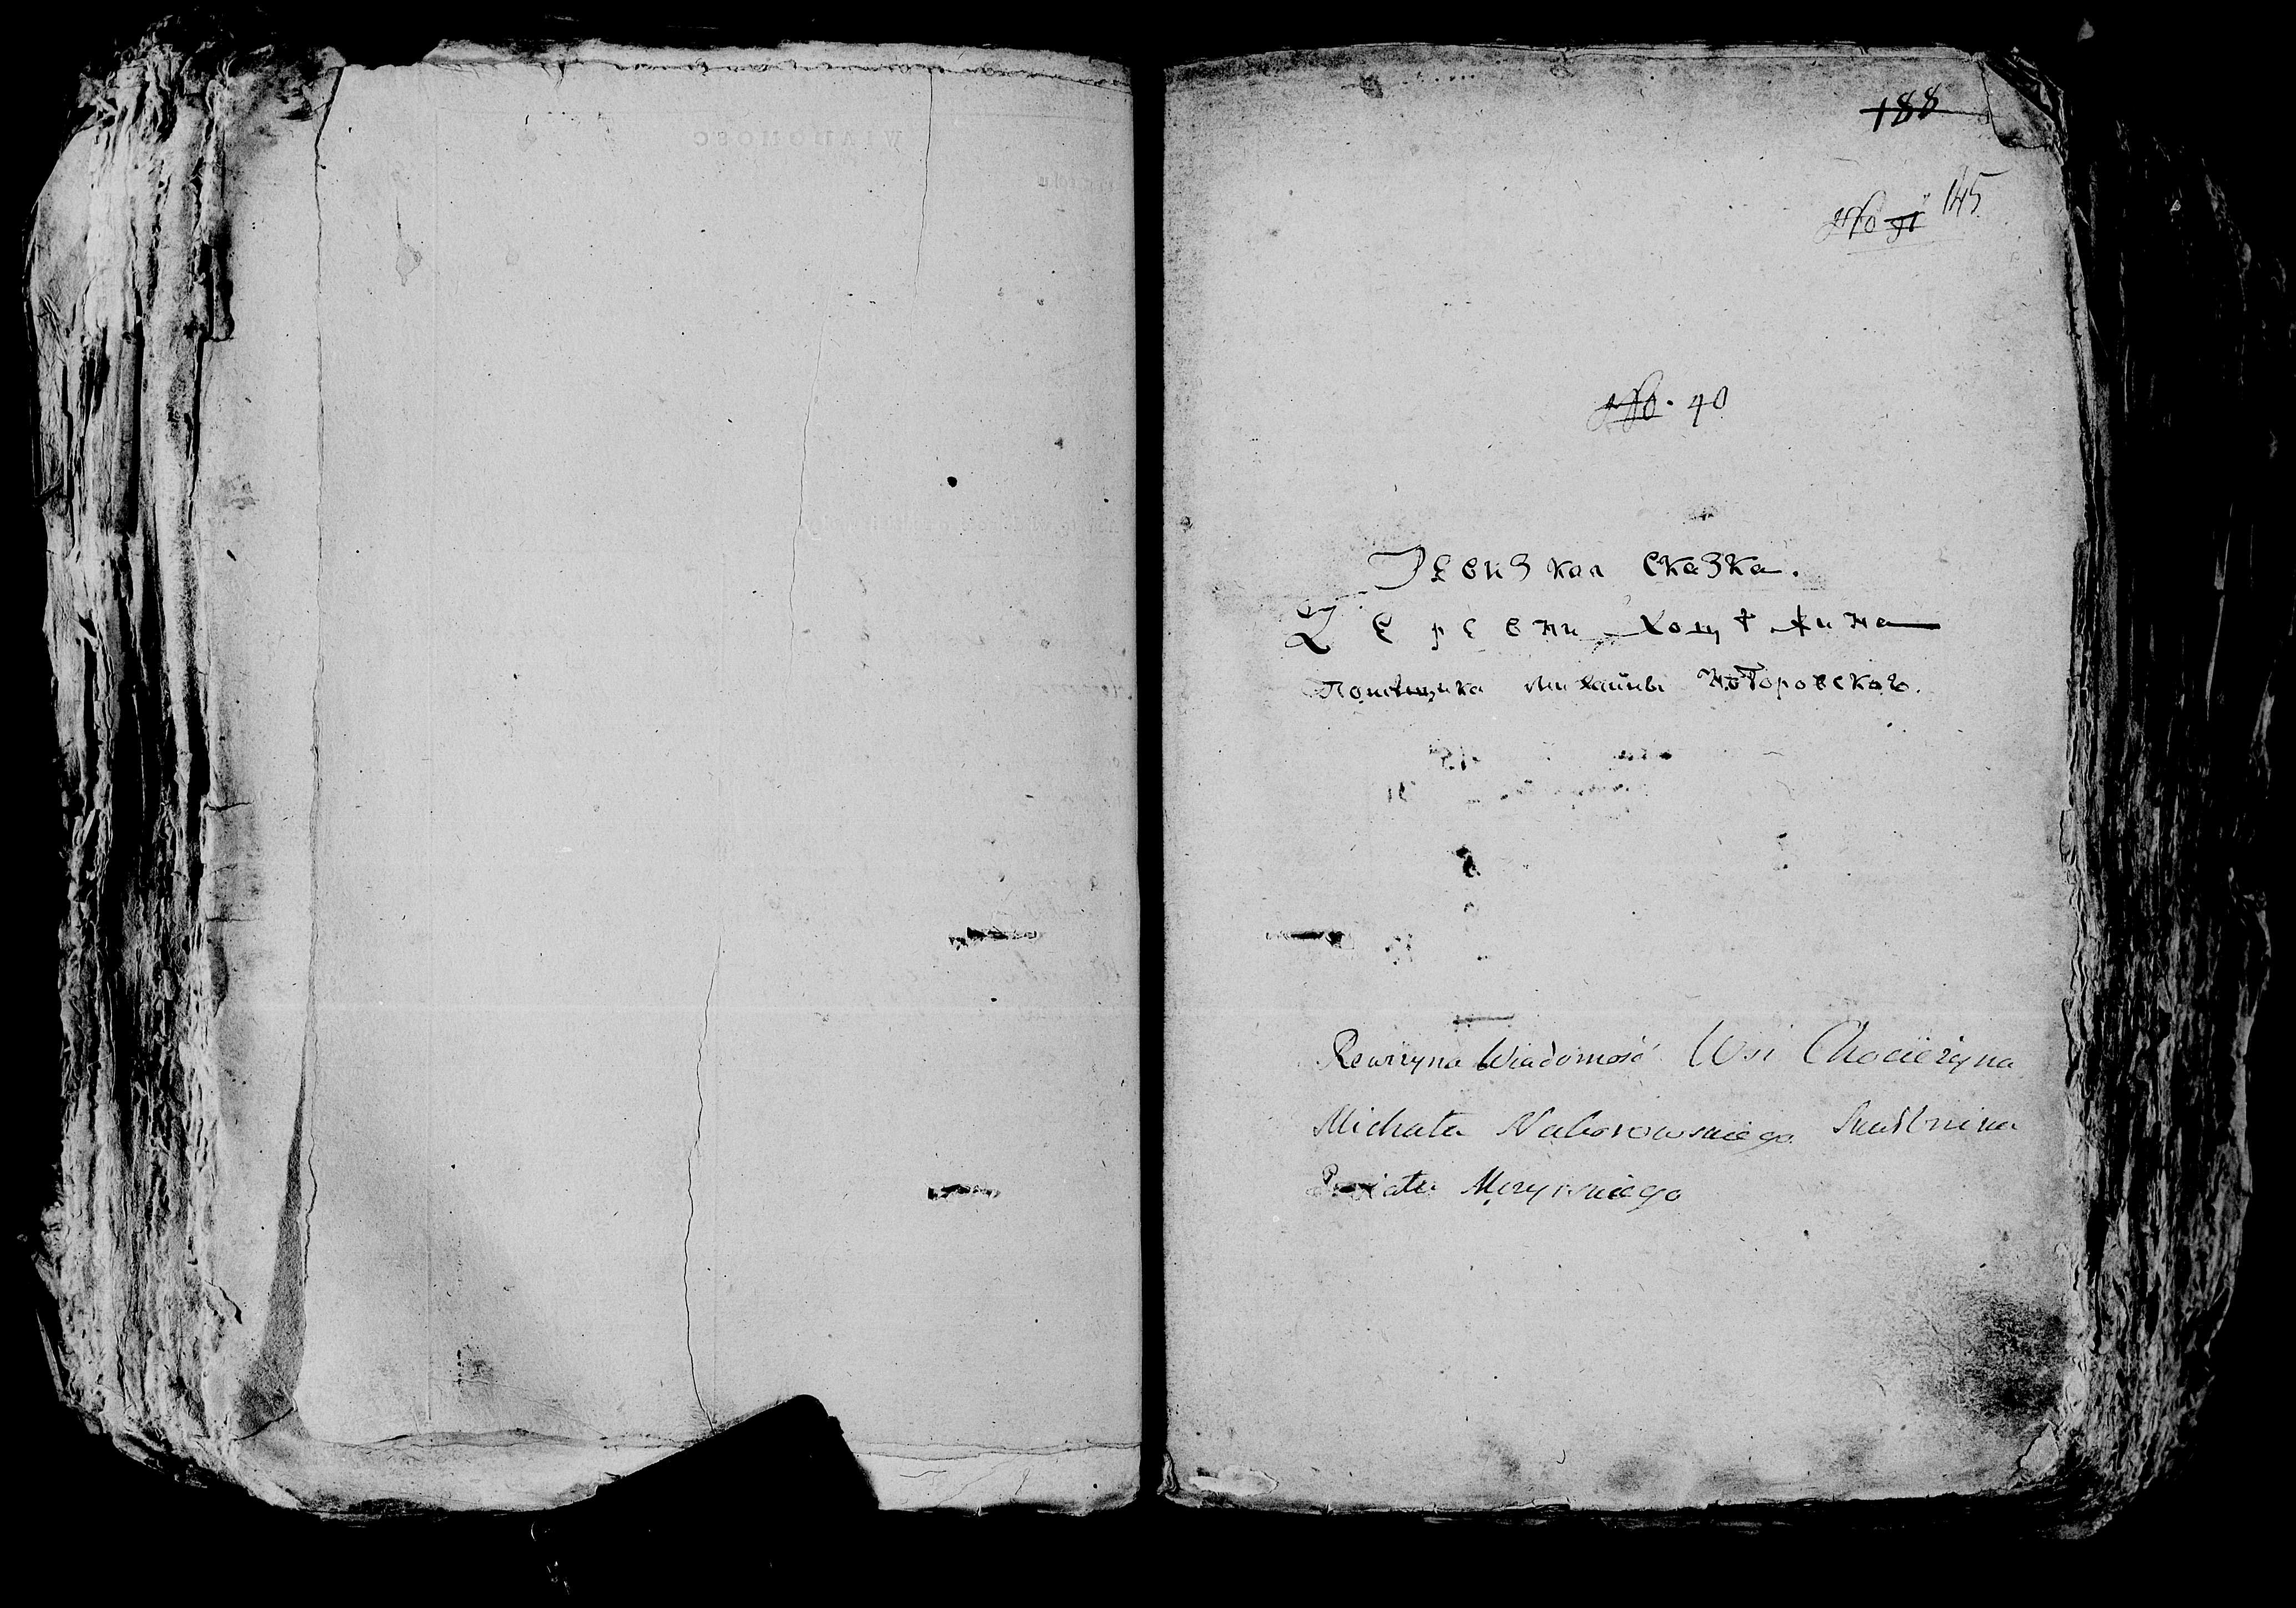 188
No 91 145
No. 40
Ревизкая сказка.
Деревни Хоцѣжина
Помѣщика Михайлы Наборовскаго.
Rewizyna Wiadomość Wsi Chocieżyna
Michała Naborowskiego Skarbnika
Powiatu Mozyrskiego